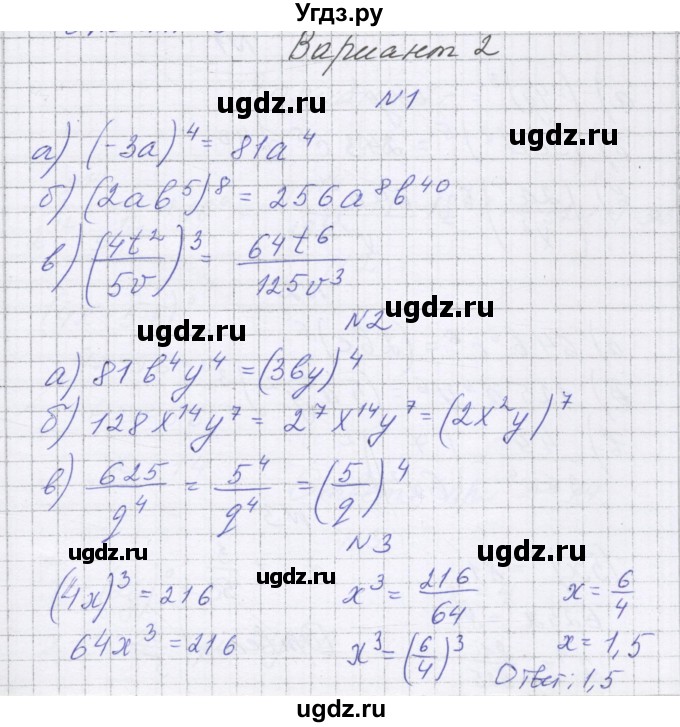 Угдз.ру
Вариант 2
№1
ugdz.ru ugdz.ru
а) (-3a)^4 = 81a^4
б) (2ab^5)^8 = 256a^8b^40
ugdz.ru
в) (4t^2/5v)^3 = 64t^6/125v^3
ugdz.ru
№2
ugdz.ru
а) 81b^4y^4 = (3by)^4
б) 128x^14y^7 = 2^7x^14y^7 = (2x^2y)^7
ugdz.ru ugdz.ru
в) 625/q^4 = 5^4/q^4 = (5/q)^4
№3
ugdz.ru ugdz.ru ugdz.ru
(4x)^3 = 216 x^3 = 216/64 x = 6/4
64x^3 = 216 x^3 = (6/4)^3 x = 1,5
ugdz.ru ugdz.ru
Ответ: 1,5
ugdz.ru